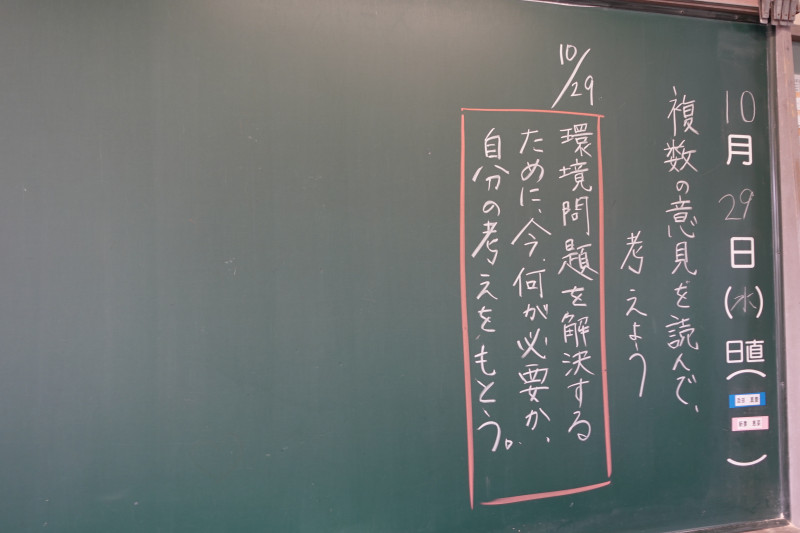 10月29日(水)日直( )
複数の意見を読んで、
考えよう
10/29
環境問題を解決する
ために、今、何が必要か、
自分の考えをもとう。